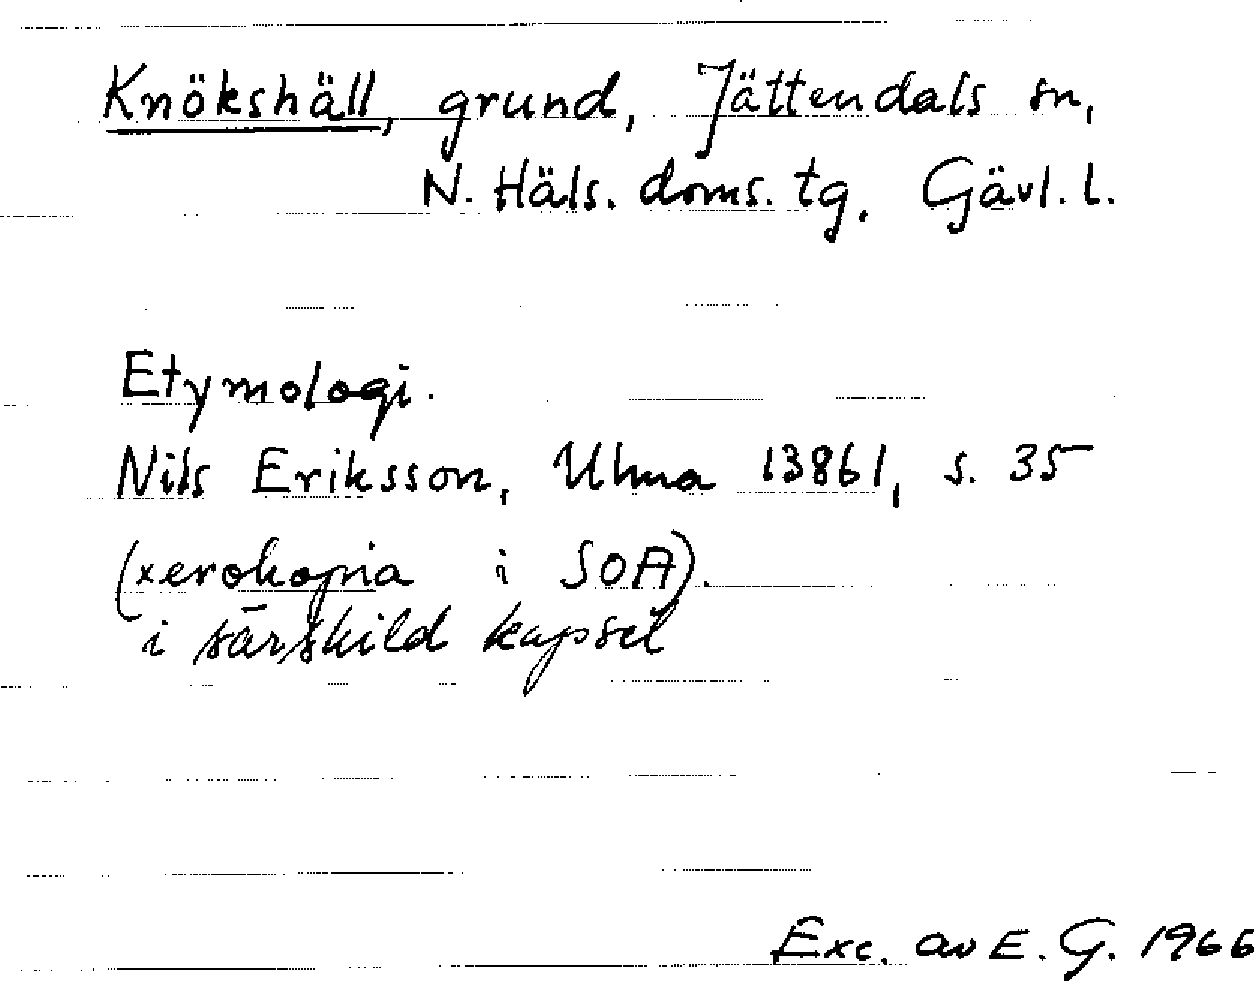 Knökshäll, grund, Jättendals sn,
N. Häls. doms. tg. Gävl. l.
Etymologi.
Nils Eriksson, Ulma 13861, s. 35
(xerokopia i SOA).
i särskild kapsel
Exc. av E. G. 1966